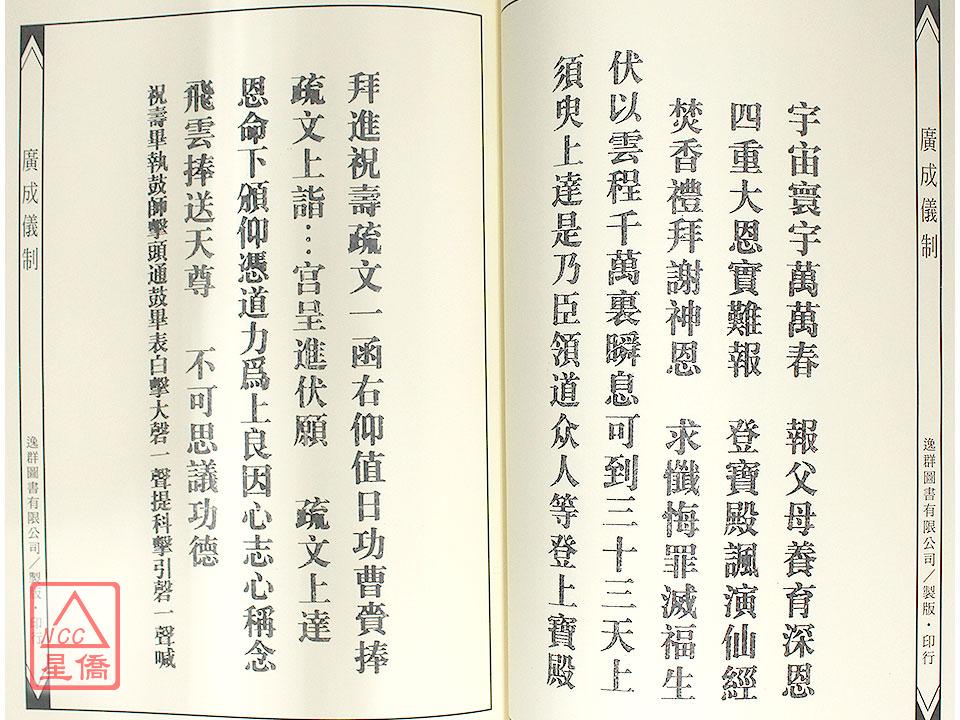 廣成儀制
逸群圖書有限公司／製版・印行
宇宙寰宇萬萬春　報父母養育深恩
四重大恩實難報　登寶殿諷演仙經
焚香禮拜謝神恩　求懺悔罪滅福生
伏以雲程千萬裏瞬息可到三十三天上
須臾上達是乃臣領道众人等登上寶殿
拜進祝壽疏文一函右仰值日功曹賫捧
疏文上詣…宫呈進伏願　疏文上達
恩命下頒仰憑道力爲上良因心志心稱念
飛雲捧送天尊　不可思議功德
祝壽畢執鼓師擊頭通鼓畢表白擊大磬一聲提科擊引磬一聲喊
廣成儀制
逸群圖書有限公司／製版・印行
NCC
星僑